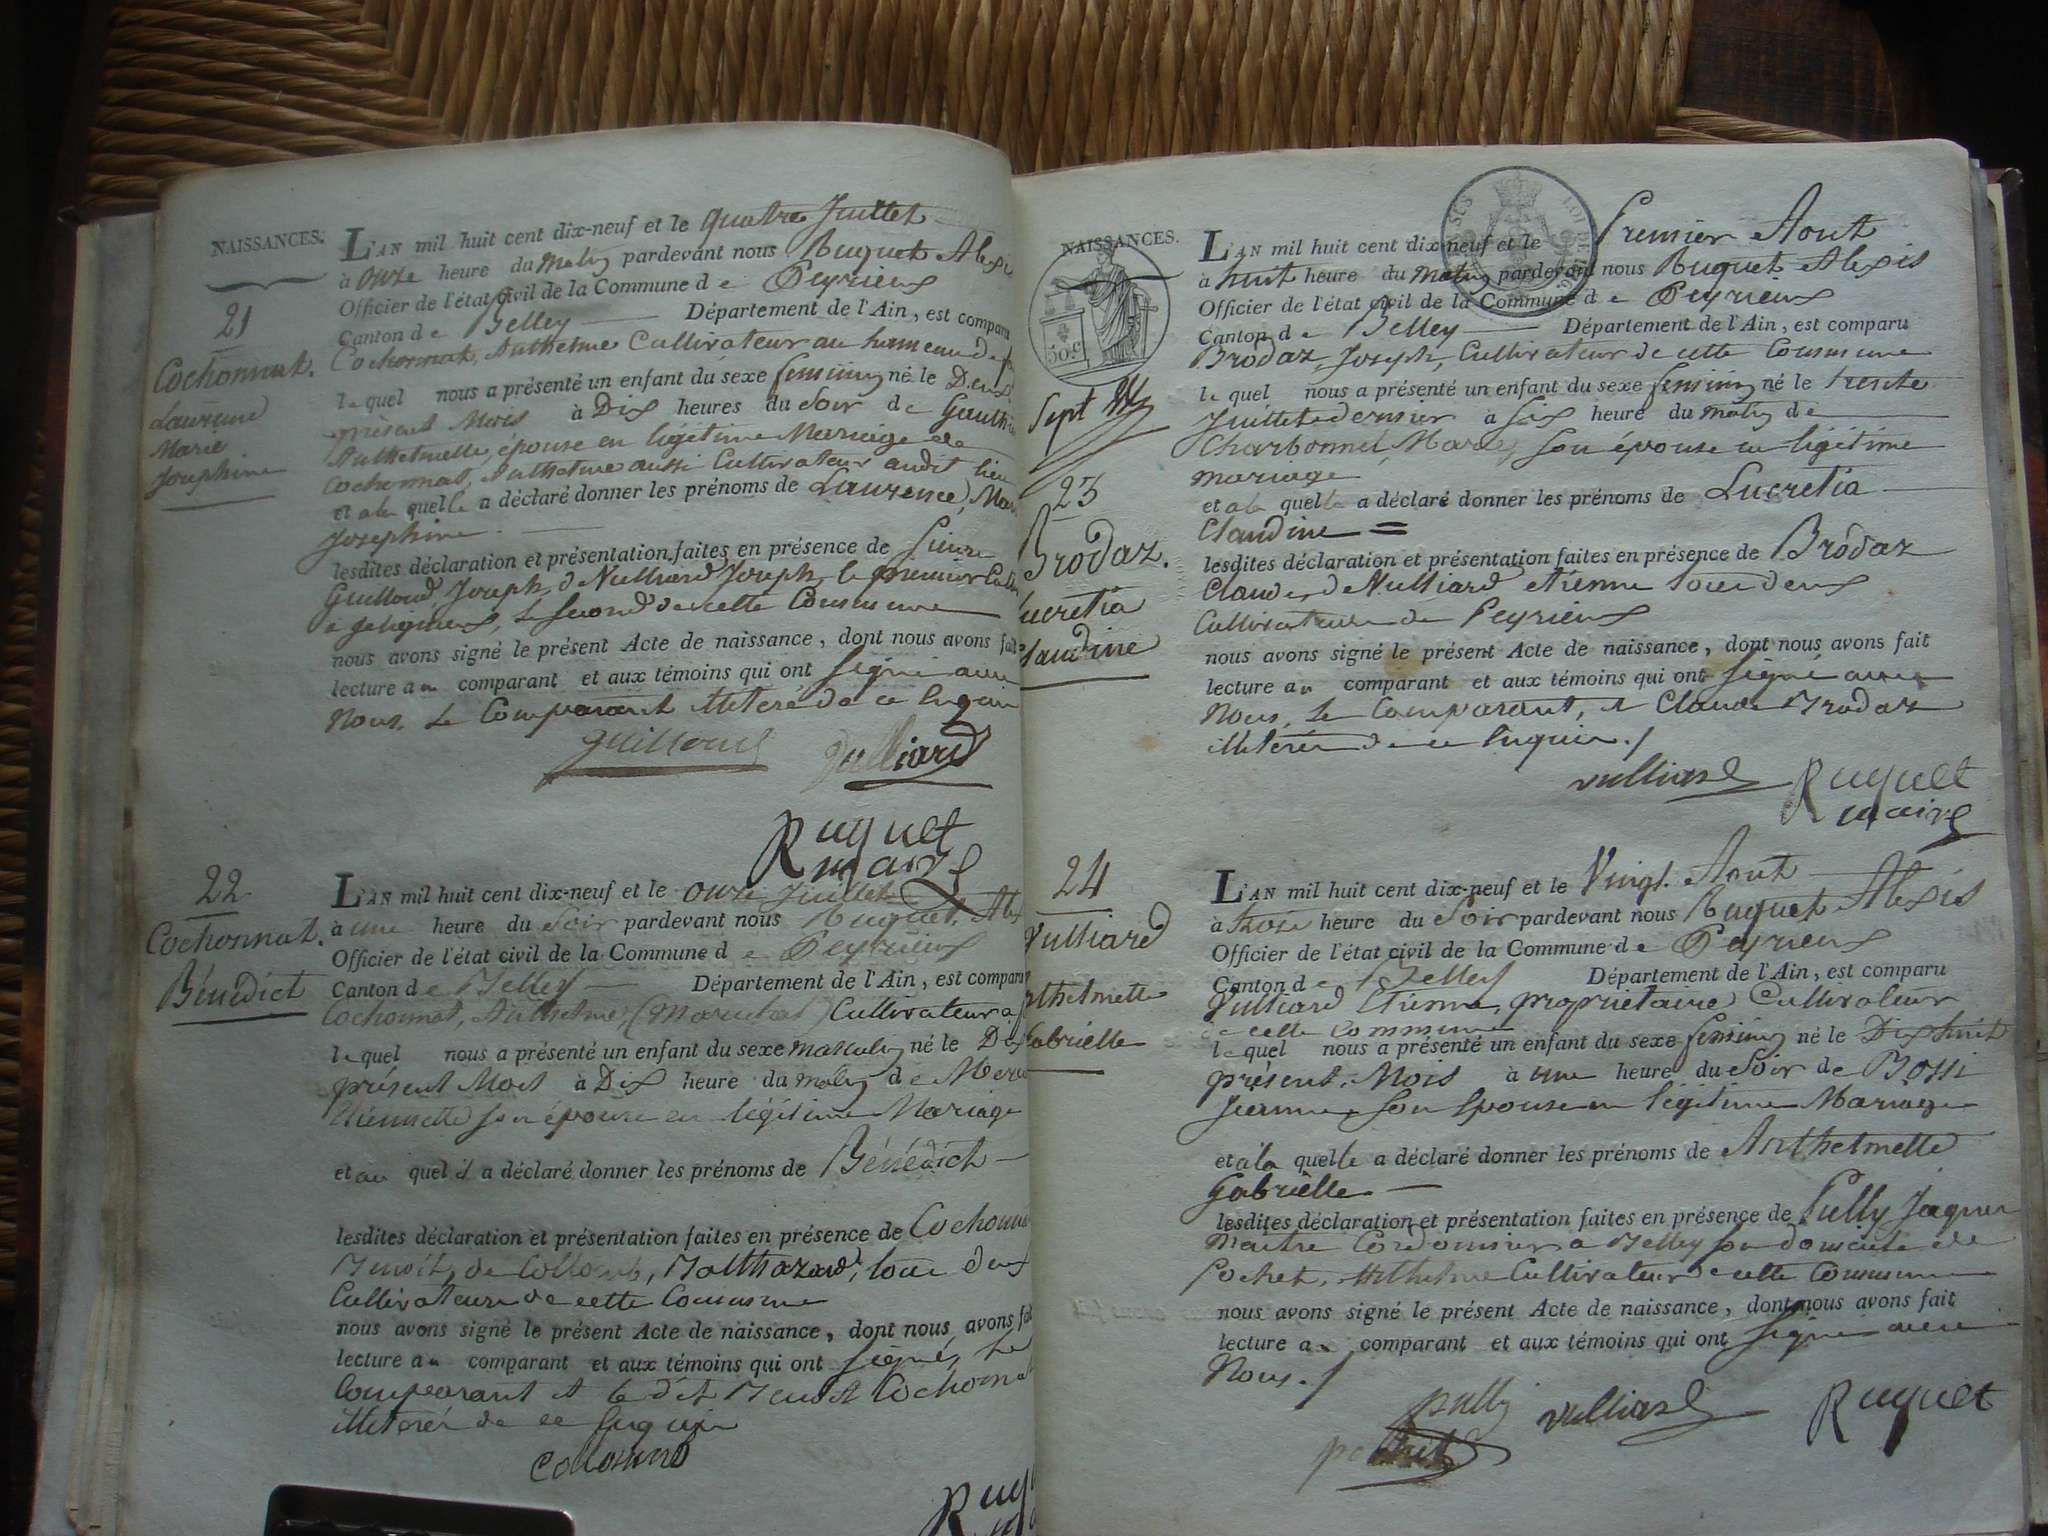 NAISSANCES.
21
Cochonnat.
Laurence
Marie
Josephine
L'AN mil huit cent dix-neuf et le quatre Juillet
à onze heure du matin pardevant nous Ruquet Alexis
Officier de l'état civil de la Commune de Peyrieux
Canton de Belley Département de l'Ain, est comparu
Cochonnat, Anthelme Cultivateur au hameau de
lequel nous a présenté un enfant du sexe feminin né le Deux
présent Mois à Dix heures du Soir de
Anthelmette, épouse en légitime Mariage de
Cochonnat, Anthelme aussi Cultivateur audit lieu
et a la quelle a déclaré donner les prénoms de Laurence, Marie
Josephine
lesdites déclaration et présentation faites en présence de
Guilloud Joseph, & Vulliard Joseph, le premier
le second de cette Commune
nous avons signé le présent Acte de naissance, dont nous avons fait
lecture au comparant et aux témoins qui ont signé avec
Nous. Le Comparant illiteré de ce enquis
guilloud
vulliard
Ruquet
maire
22
Cochonnat.
Bénédict
L'AN mil huit cent dix-neuf et le onze Juillet
à une heure du Soir pardevant nous Ruquet, Alexis
Officier de l'état civil de la Commune de Peyrieux
Canton de Belley Département de l'Ain, est comparu
Cochonnat, Anthelme, Cultivateur a
lequel nous a présenté un enfant du sexe masculin né le Dix
présent Mois à Dix heure du matin de
Etiennette son épouse en légitime Mariage
et au quel il a déclaré donner les prénoms de Bénédict
lesdites déclaration et présentation faites en présence de Cochonnat
Benoit, & Collomb, Balthazard, tous deux
Cultivateurs de cette Commune
nous avons signé le présent Acte de naissance, dont nous avons fait
lecture au comparant et aux témoins qui ont signé, le
Comparant et le dit Benoit Cochonnat
illiterés de ce enquis
Collomb
Ruquet
NAISSANCES.
50 c
23
Brodaz.
Lucretia
Claudine
L'AN mil huit cent dix-neuf et le Premier Aout
à huit heure du matin pardevant nous Ruquet Alexis
Officier de l'état civil de la Commune de Peyrieux
Canton de Belley Département de l'Ain, est comparu
Brodaz, Joseph, Cultivateur de cette Commune
lequel nous a présenté un enfant du sexe feminin né le trente
Juillet dernier à six heure du matin de
Charbonnel Marie, son épouse en légitime
mariage
et a la quelle a déclaré donner les prénoms de Lucretia
Claudine
lesdites déclaration et présentation faites en présence de Brodaz
Claude, & Vulliard etienne tous deux
Cultivateurs de Peyrieux
nous avons signé le présent Acte de naissance, dont nous avons fait
lecture au comparant et aux témoins qui ont signé avec
Nous, Le Comparant, et Claude Brodaz
illiterés de ce enquis./
vulliard
Ruquet
maire
24
Vulliard
Anthelmette
Gabrielle
L'AN mil huit cent dix-neuf et le Vingt Aout
à trois heure du Soir pardevant nous Ruquet Alexis
Officier de l'état civil de la Commune de Peyrieux
Canton de Belley Département de l'Ain, est comparu
Vulliard Etienne, propriétaire Cultivateur
de cette commune
lequel nous a présenté un enfant du sexe feminin né le Dix huit
présent, Mois à une heure du Soir de Bossi
Jeanne, son Epouse en légitime Mariage
et a la quelle a déclaré donner les prénoms de Anthelmette
Gabrielle
lesdites déclaration et présentation faites en présence de Pully Jaques
Maitre Cordonnier a Belley son domicile &
Pochet, Anthelme Cultivateur de cette Commune
nous avons signé le présent Acte de naissance, dont nous avons fait
lecture au comparant et aux témoins qui ont signé avec
Nous./
pully
vulliard
Ruquet